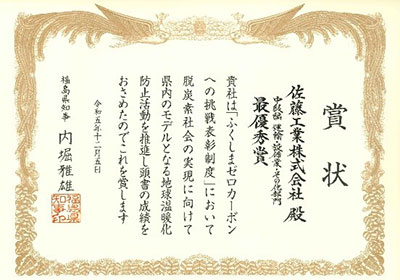 賞状
佐藤工業株式会社 殿
中級編 その他部門
最優秀賞
貴社は「ふくしまゼロカーボン
への挑戦表彰制度」において
脱炭素社会の実現に向けて
県内のモデルとなる地球温暖化
防止活動を推進し頭書の成績を
おさめたのでこれを賞します
令和五年十二月五日
福島県知事 内堀雅雄
福島県
知事印